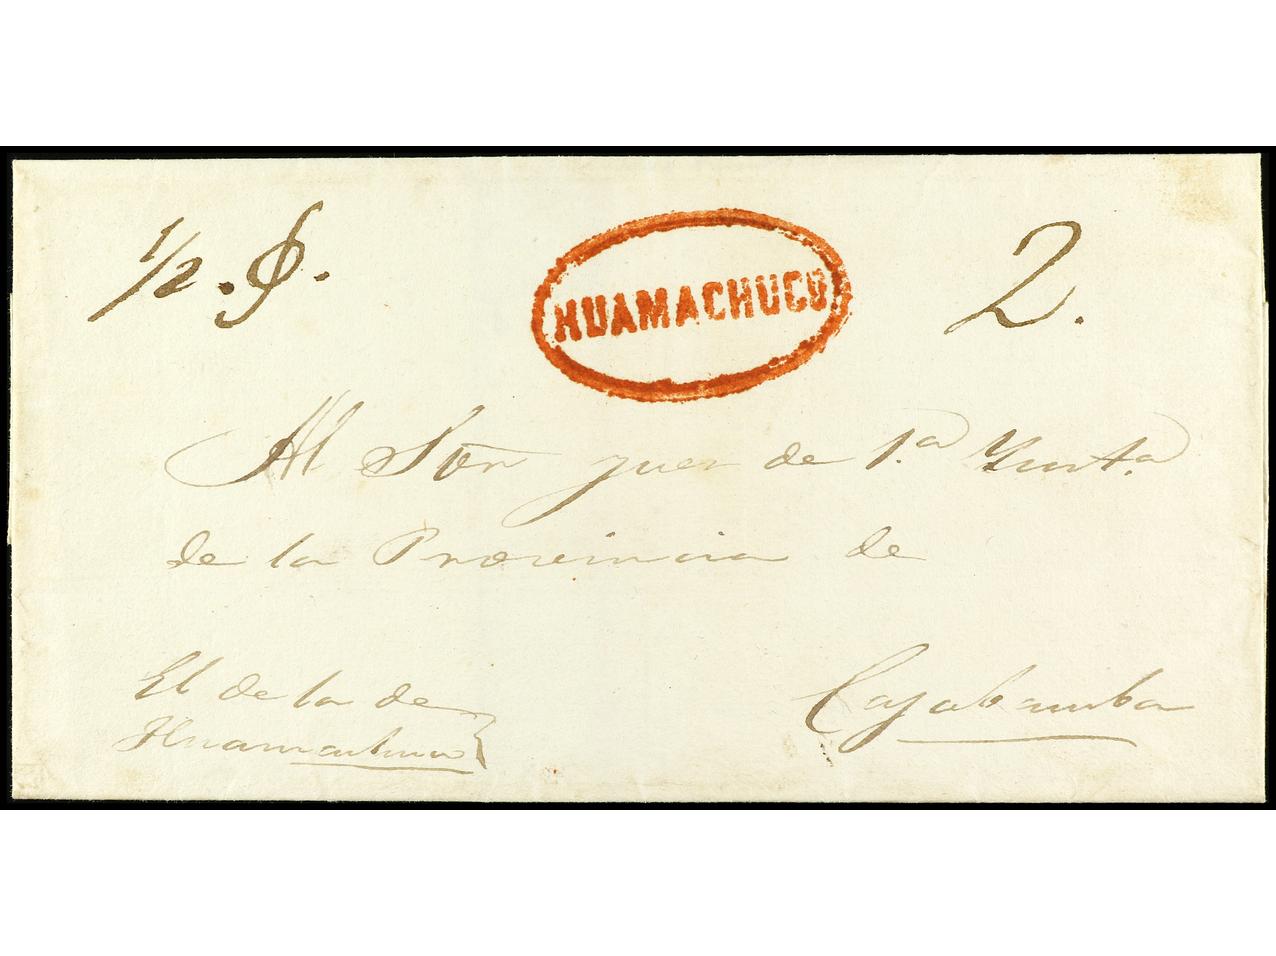 1/2.
HUAMACHUCO
2.
Al Sōr juez de 1.ª Ynst.ª
de la Provincia de
El de la de
Huamachuco
Cajabamba